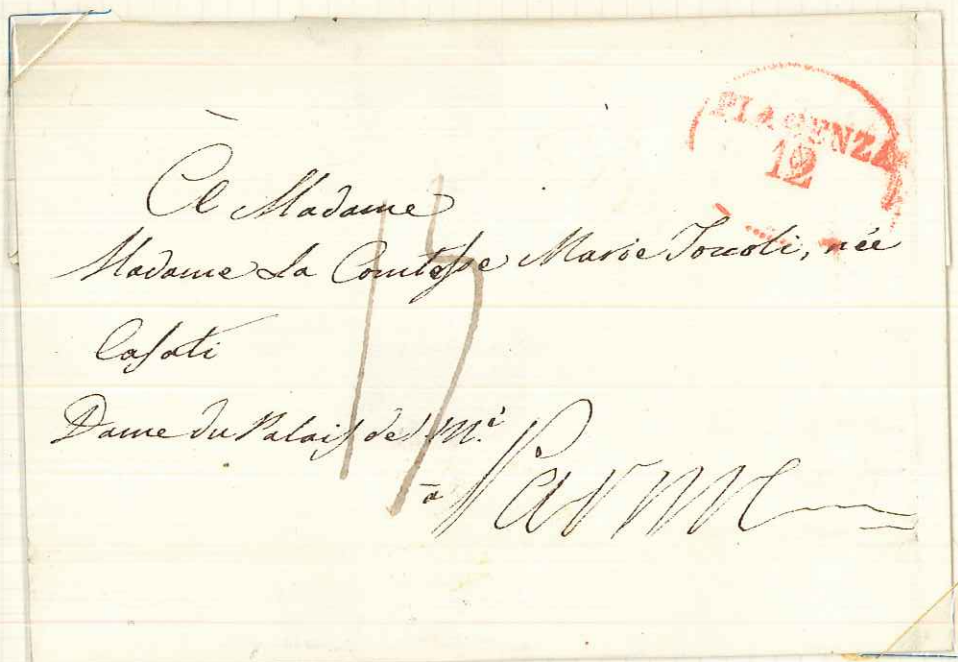 PIACENZA
12
À Madame
Madame La Comtesse Marie Toccoli, née
Casati
Dame du Palais de S. M.
à Parme
15